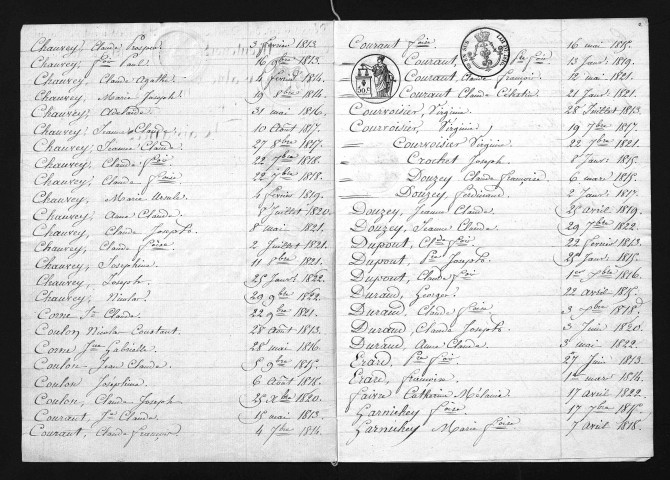 Chauvey, Claude Prosper 3 février 1813.
Chauvey, Fçois Paul 16 9bre 1813.
Chauvey, Claude Agathe 4 février 1814.
Chauvey, Marie Joseph 19 8bre 1814.
Chauvey, Adelaïde 31 mai 1816.
Chauvey, Jeanne Claude 10 Août 1817.
Chauvey, Jeanne Claude 27 8bre 1817.
Chauvey, Claude Fçois 22 7bre 1818.
Chauvey, Claude Fçoise 22 7bre 1818.
Chauvey, Marie Ursule 4 février 1819.
Chauvey, Anne Claude 5 Juillet 1820.
Chauvey, Claude Joseph 8 mai 1821.
Chauvey, Claude Fçoise 2 Juillet 1821.
Chauvey, Josephine 11 8bre 1821.
Chauvey, Joseph 25 Janvr 1822.
Chauvey, Nicolas 29 9bre 1822.
Corne, Je Claude 22 9bre 1821.
Coulon Nicolas Constant 28 août 1813.
Corne Jne Gabrielle 28 mai 1816.
Coulon Jean Claude 8 9bre 1815.
Coulon Josephine 6 Août 1818.
Coulon, Claude Joseph 25 Xbre 1820.
Courant, Jn Claude 15 mai 1813.
Courant, Claude François 4 7bre 1814.
Courant Fçoise 16 mai 1815.
Courant, Pre Fçois 13 Janv 1819.
Courant, Claude François 12 mai 1821.
Courant Claude Célestin 21 Janv 1821.
Courvoisier, Virginie 28 Juillet 1813.
Courvoisier, Virginie 19 7bre 1817.
Courvoisier Virginie 22 7bre 1821.
Crochet Joseph 8 Janv 1815.
Douzey Claude Françoise 6 mars 1815.
Douzey Ferdinand 2 Janv 1817.
Douzey, Jeanne Claude 25 avril 1819.
Douzey, Jeanne Claude 29 7bre 1822.
Dupont, Cl Fçois 22 février 1813.
Dupont, Pre Joseph 25 Janv 1815.
Dupont, Claude Fçois 1er 7bre 1816.
Durand, Georges 22 avril 1815.
Durand, Claude Fçoise 3 Xbre 1818.
Durand, Claude Joseph 3 Juin 1820.
Durand, Anne Claude 3 mai 1822.
Erard, Pre Fçois 27 Juin 1813.
Erard, François 1er mars 1814.
Faivre Catherine Mélanie 17 avril 1822.
Garnichey Fçoise 17 7bre 1815.
Garnichey Marie Fçoise 7 avril 1818.